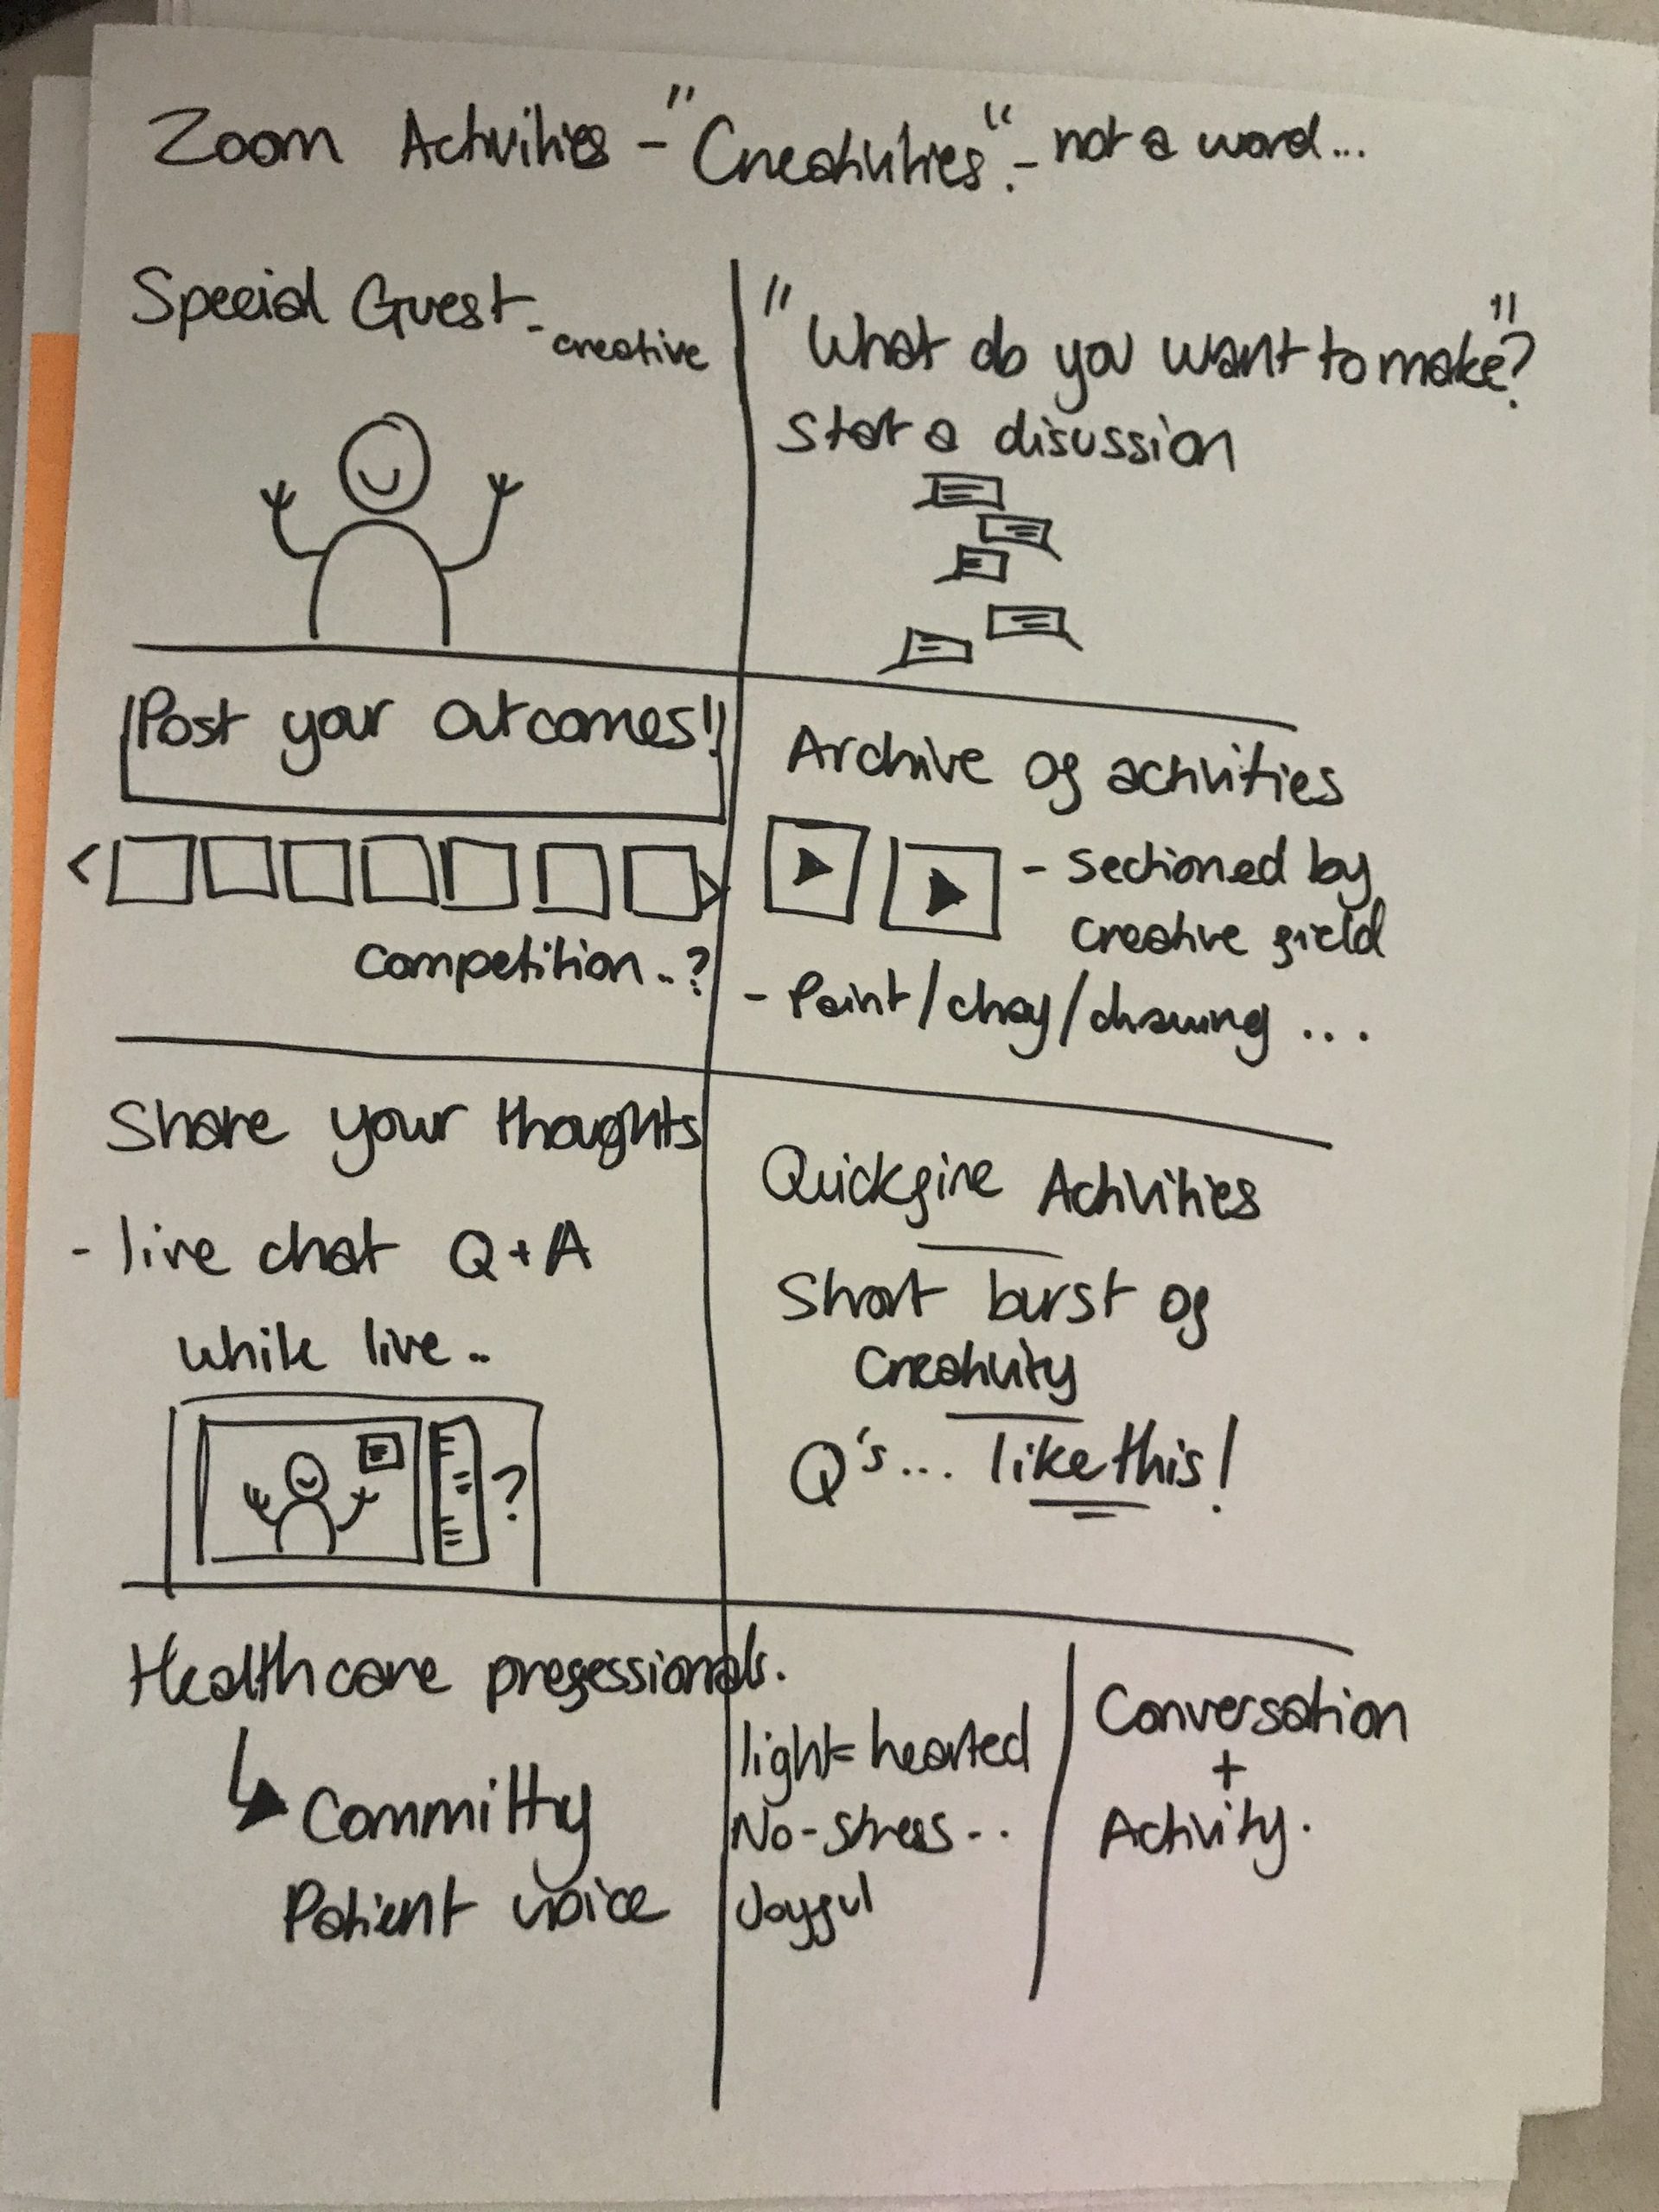 Zoom Activities - "Creativities". - not a word...
Special Guest - creative
"What do you want to make"?
Start a disussion
Post your outcomes!!
competition..?
Archive of activities
- Sectioned by
creative field
- Paint/clay/drawing ...
Share your thoughts
- live chat Q + A
while live..
?
Quickfire Activities
Short burst of
Creativity
Q's... like this!
Healthcare professionals.
Committy
Patient voice
light=hearted
No-stress..
Joyful
Conversation
+
Activity.